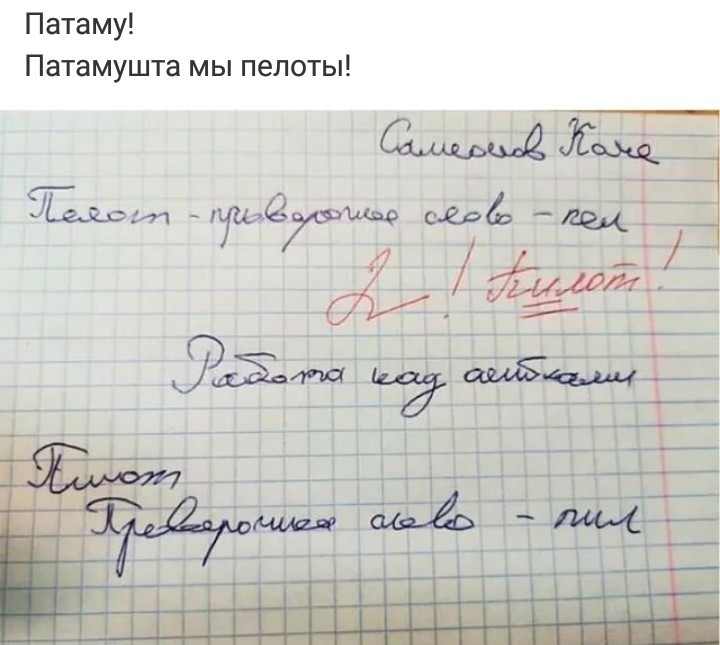 Патаму!
Патамушта мы пелоты!
Самсонов Коля
Пелот - прыверочное слово - пел
2! Пилот!
Работа над ашибками
Пилот
Преверочное слово - пил